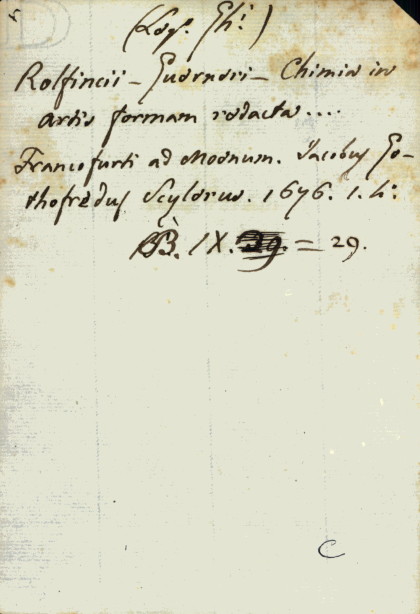 Rolfincii - Guerneri - Chimia in
artis formam redacta ....
Francofurti ad Moenum. Jacobus Go-
thofredus Seylerus. 1676. 1. 4:
BB. IX. = 29.
C